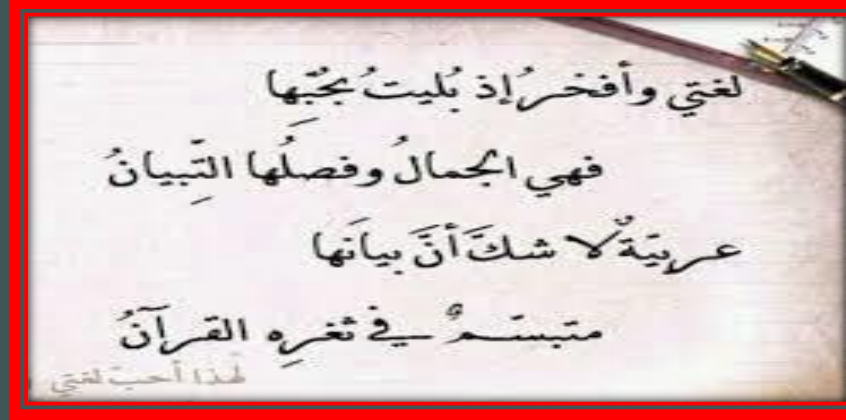 لغتي وأفخرُ إذ بُليتُ بحُبِّها
فهي الجمالُ وفصلُها التِّبيانُ
عربيّةٌ لا شكَّ أنَّ بيانَها
متبسّمٌ في ثغرِه القرآنُ
لهذا أحبّ لغتي